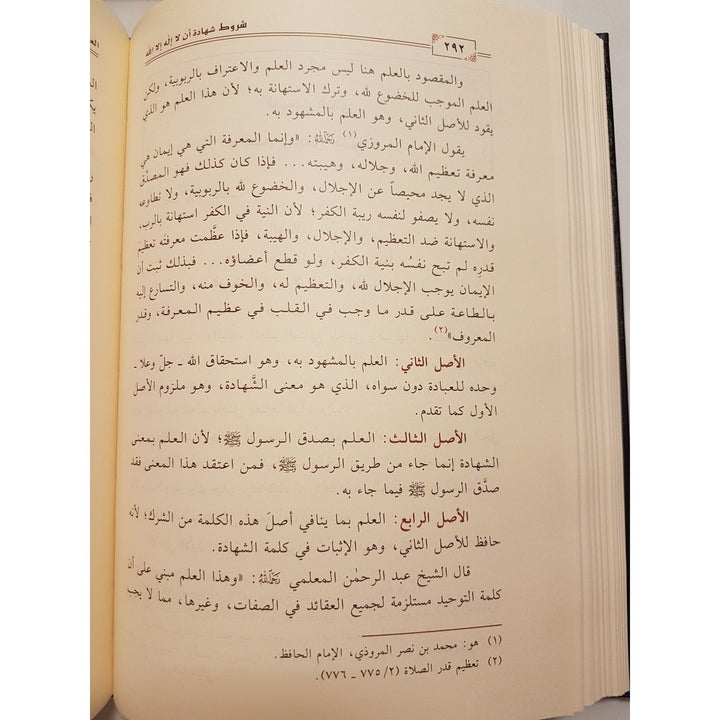 شروط شهادة أن لا إله إلا الله
٢٩٢
والمقصود بالعلم هنا ليس مجرد العلم والاعتراف بالربوبية، ولكن
العلم الموجب للخضوع لله، وترك الاستهانة به؛ لأن هذا العلم هو الذي
يقود للأصل الثاني، وهو العلم بالمشهود به.
يقول الإمام المروزي(١) رَحِمَهُ اللهُ: «وإنما المعرفة التي هي إيمان هي
معرفة تعظيم الله، وجلاله، وهيبته... فإذا كان كذلك فهو المصدِّق
الذي لا يجد محيصاً عن الإجلال، والخضوع لله بالربوبية، ولا تطاوعه
نفسه، ولا يصفو لنفسه ريبة الكفر؛ لأن النية في الكفر استهانة بالرب،
والاستهانة ضد التعظيم، والإجلال، والهيبة، فإذا عظَّمت معرفته تعظيم
قدره لم تبح نفسُه بنية الكفر، ولو قطع أعضاؤه... فبذلك ثبت أن
الإيمان يوجب الإجلال لله، والتعظيم له، والخوف منه، والتسارع إليه
بالطاعة على قدر ما وجب في القلب في عظيم المعرفة، وقدر
المعروف»(٢).
الأصل الثاني: العلم بالمشهود به، وهو استحقاق الله ـ جلّ وعلا ـ
وحده للعبادة دون سواه، الذي هو معنى الشَّهادة، وهو ملزوم الأصل
الأول كما تقدم.
الأصل الثالث: العلم بصدق الرسول ﷺ؛ لأن العلم بمعنى
الشهادة إنما جاء من طريق الرسول ﷺ، فمن اعتقد هذا المعنى فقد
صدَّق الرسول ﷺ فيما جاء به.
الأصل الرابع: العلم بما ينافي أصلَ هذه الكلمة من الشرك؛ لأنه
حافظ للأصل الثاني، وهو الإثبات في كلمة الشهادة.
قال الشيخ عبد الرحمٰن المعلمي رَحِمَهُ اللهُ: «وهذا العلم مبني على أن
كلمة التوحيد مستلزمة لجميع العقائد في الصفات، وغيرها، مما لا يجب
(١) هو: محمد بن نصر المروذي، الإمام الحافظ.
(٢) تعظيم قدر الصلاة (٢/ ٧٧٥ ـ ٧٧٦).